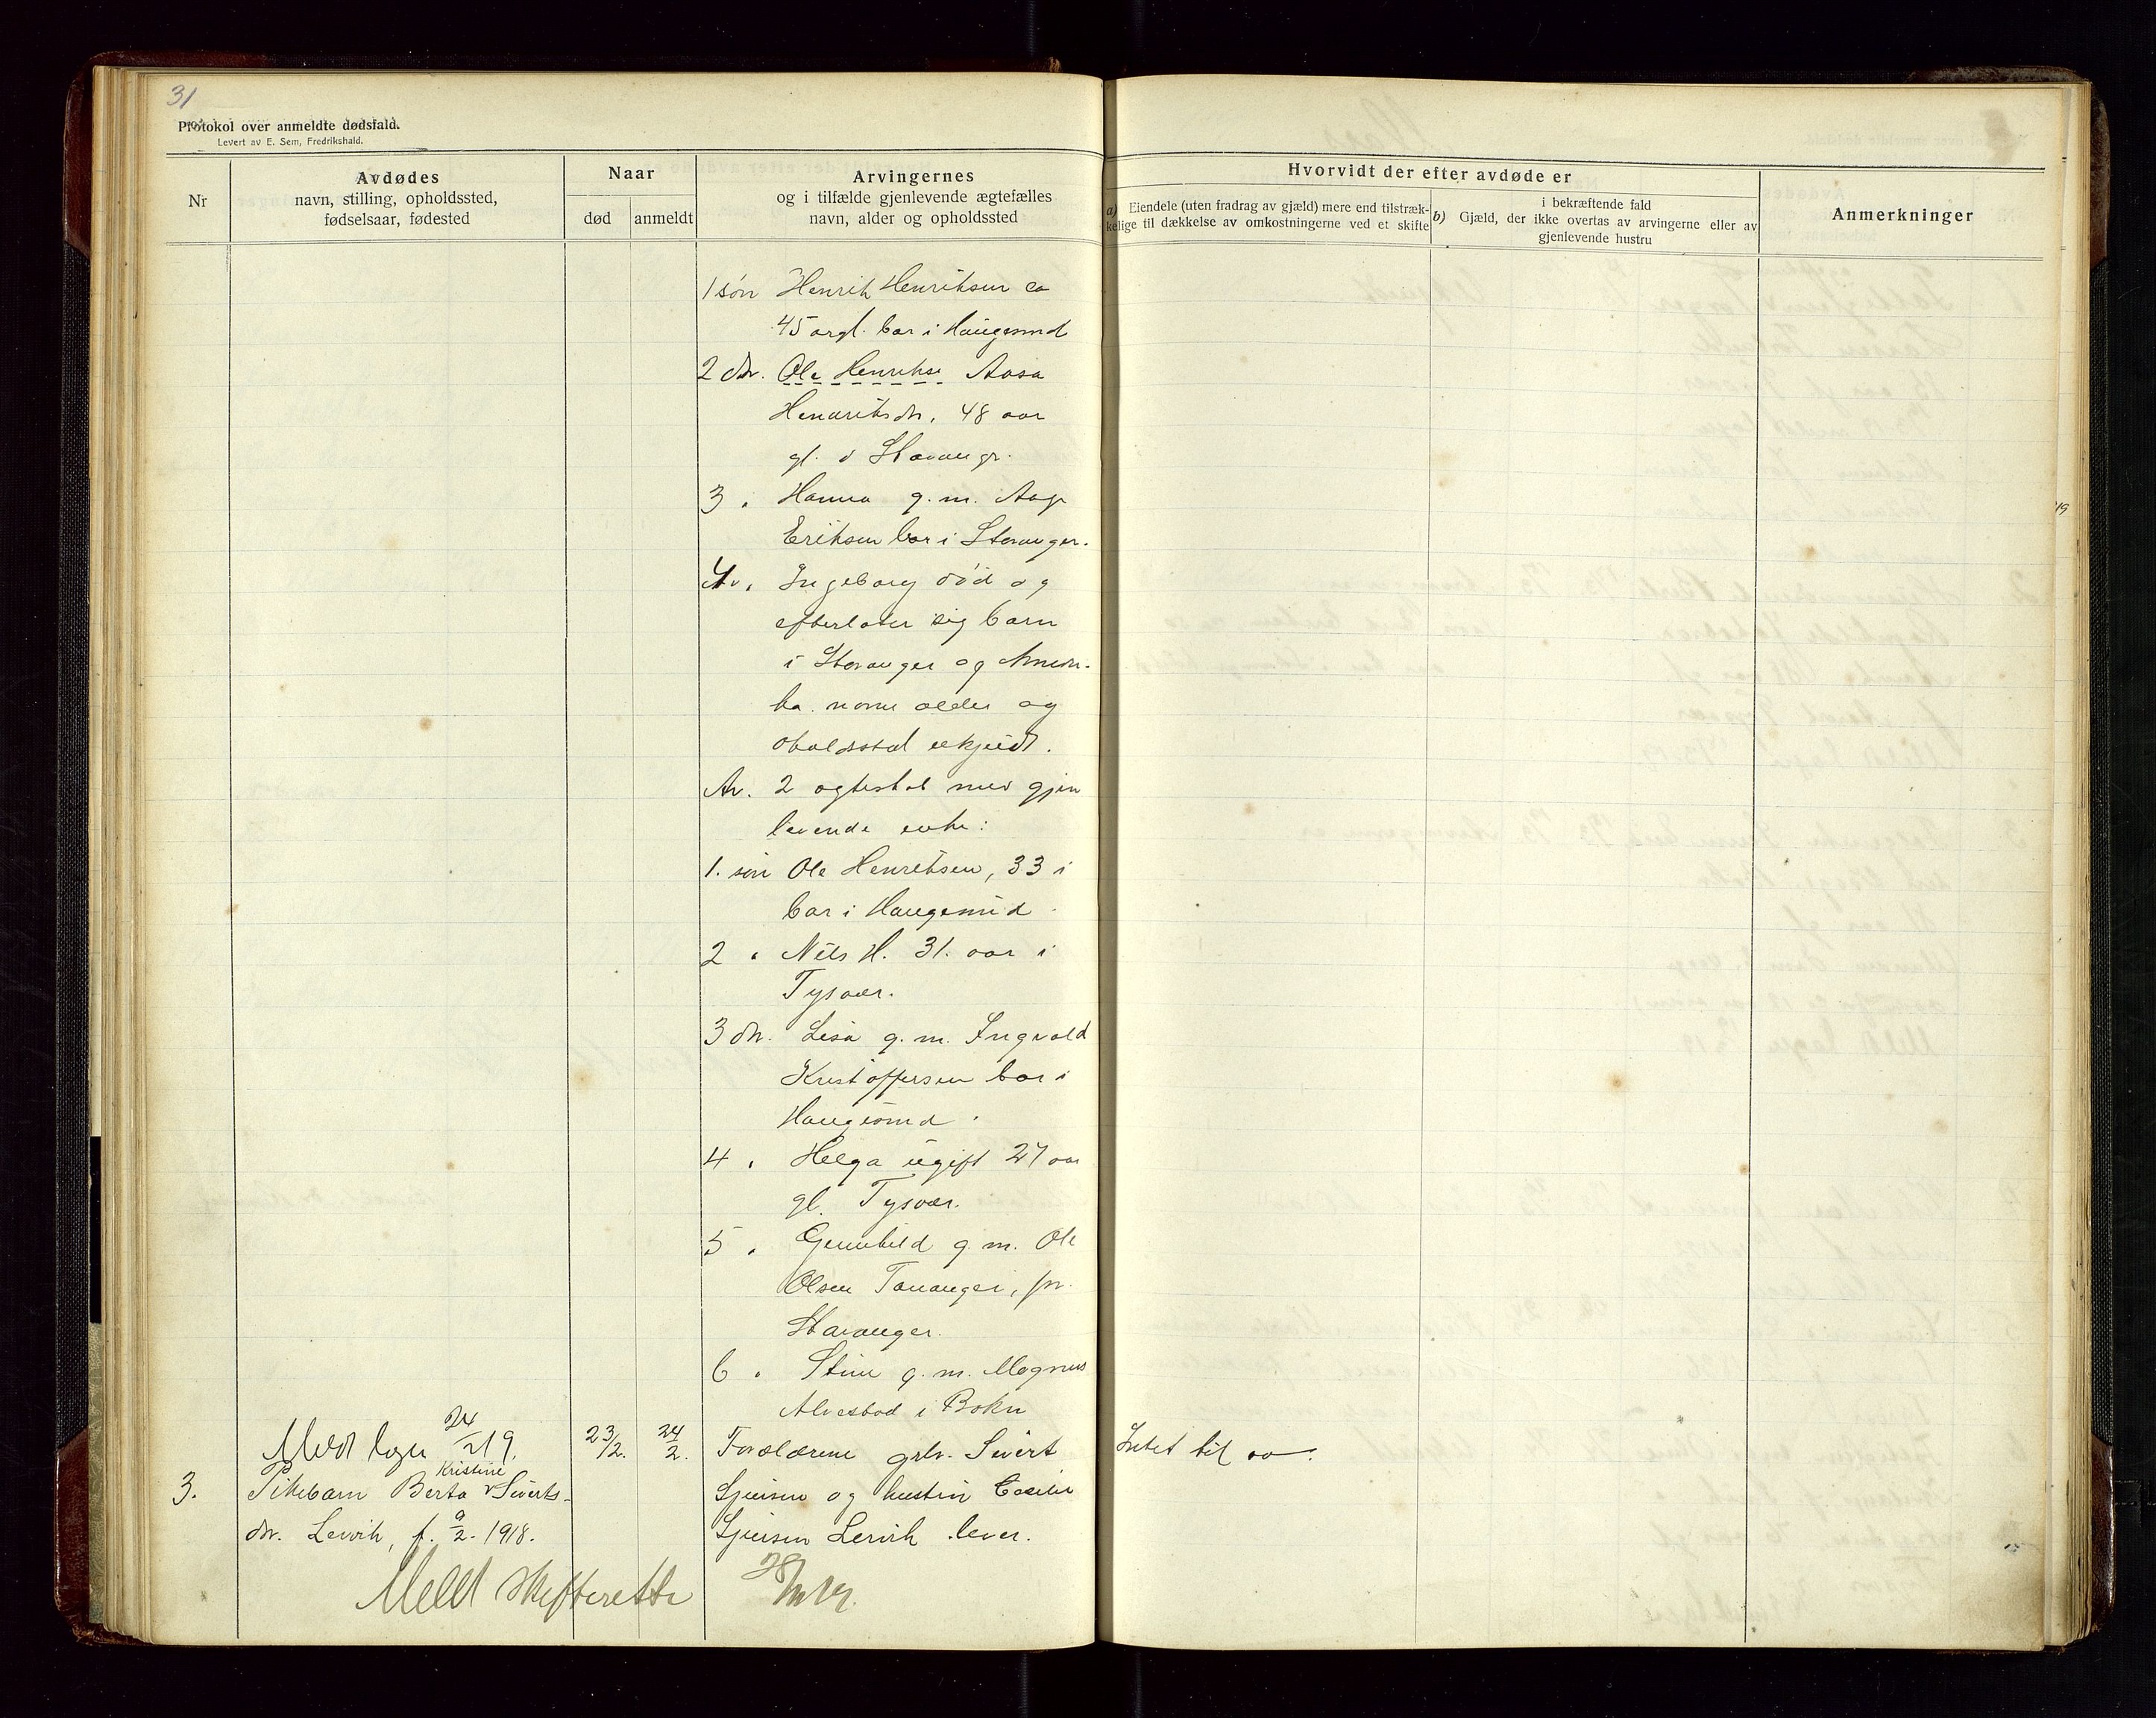 31
Protokol over anmeldte dødsfald.
Levert av E. Sem, Fredrikshald.
Nr
Avdødes
navn, stilling, opholdssted,
fødselsaar, fødested
Naar
død
anmeldt
Arvingernes
og i tilfælde gjenlevende ægtefælles
navn, alder og opholdssted
Hvorvidt der efter avdøde er
a) Eiendele (uten fradrag av gjæld) mere end tilstræk-
kelige til dækkelse av omkostningerne ved et skifte
i bekræftende fald
b) Gjæld, der ikke overtas av arvingerne eller av
gjenlevende hustru
Anmerkninger
1 søn Henrik Henriksen ca
45 argl. bor i Haugesund
2 dtr. Ole Henrikse Aasa
Henriksdtr, 48 aar
gl. i Stavanger.
3 " Hanna g. m. Aage
Eriksen bor i Stavanger.
4 " Ingeborg død og
efterlater sig barn
i Stavanger og Ameri-
ka. navne alder og
oholdssted ukjendt.
Av. 2 ægteskab med gjen
levende enke:
1. søn Ole Henriksen, 33 i
bor i Haugesund
2 " Nils H. 31. aar i
Tysvær.
3 dtr. Lisa g. m. Ingvald
Kristoffersen bor i
Haugesund.
4 " Helga ugift 27 aar
gl. Tysvær.
5 " Gunnhild g. m. Ole
Olsen Tananger, pr.
Stavanger.
6 " Stine g. m. Magnus
Alvestad i Bokn
Meldt 24/2 19.
3.
Pikebarn Berta Kristine Siverts-
dtr. Lervik, f. 9/2. 1918.
23/2.
24/2.
Forældrene grbr. Sivert
og hustru Cecilie
Lervik lever.
Intet til
Meldt skifteretten 28/